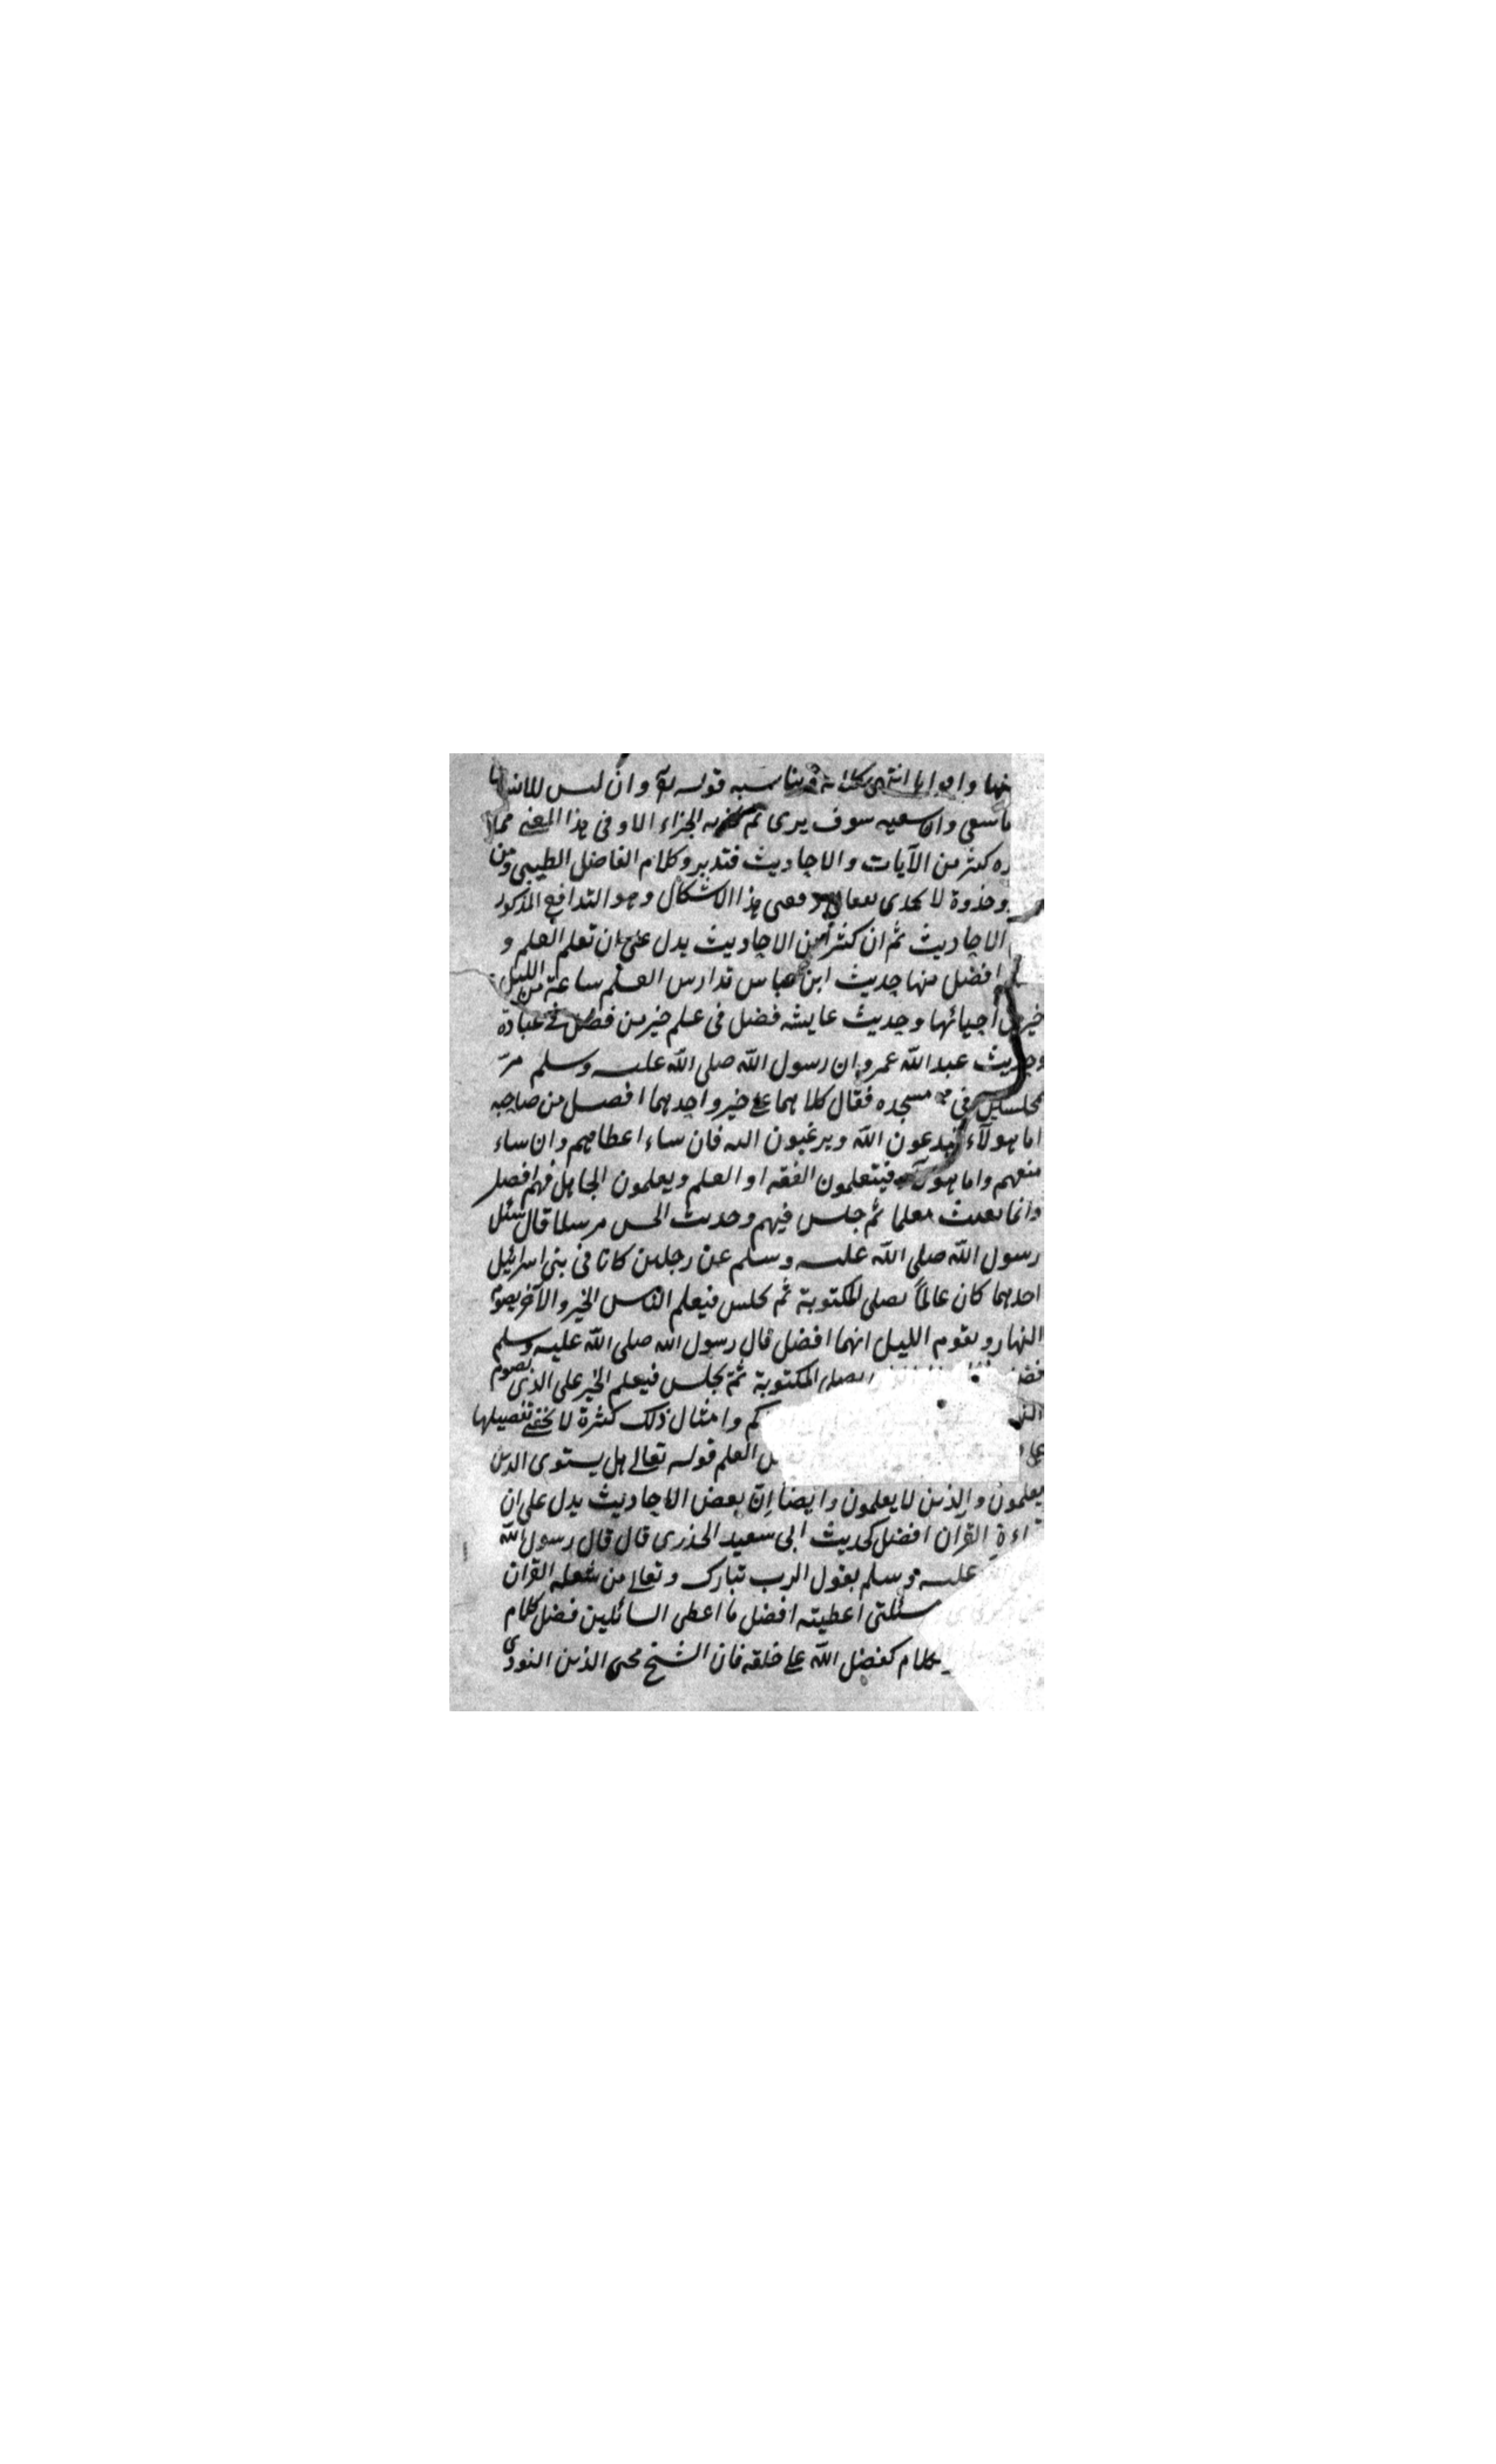 وان ليس للانسان
ما سعى وان سعيه سوف يرى ثم الجزاء الاوفى هذا المعنى مما
كثر من الآيات والاحاديث فتدبر وكلام الفاضل الطيبى ومن
هذا الاشكال وهو التدافع المذكور
الاحاديث ثم ان كثرا من الاحاديث يدل على ان تعلم العلم و
افضل منها حديث ابن عباس تدارس العلم ساعة من الليل
خير من احيائها وحديث عايشه فضل فى علم خير من فضل فى عبادة
وحديث عبد الله عمرو ان رسول الله صلى الله عليه وسلم مرّ
بمجلسين فى مسجده فقال كلاهما على خير واحدهما افضل من صاحبه
اما هولآء فيدعون الله ويرغبون اليه فان شاء اعطاهم وان شاء
منعهم واما هولآء فيتعلمون الفقه او العلم ويعلمون الجاهل فهم افضل
وانما بعثت معلما ثم جلس فيهم وحديث الحسن مرسلا قال سئل
رسول الله صلى الله عليه وسلم عن رجلين كانا فى بنى اسرائيل
احدهما كان عالماً يصلى المكتوبة ثم يجلس فيعلم الناس الخير والآخر يصوم
النهار ويقوم الليل ايهما افضل قال رسول الله صلى الله عليه وسلم
يصلى المكتوبة ثم يجلس فيعلم الخير على الذى يصوم
وامثال ذلك كثيرة لا يخفى تفصيلها
العلم قوله تعالى هل يستوى الذين
يعلمون والذين لا يعلمون وايضا ان بعض الاحاديث يدل على ان
قراءة القرآن افضل كحديث ابى سعيد الخدرى قال قال رسول الله
عليه وسلم يقول الرب تبارك وتعالى من شغله القران
مسئلتى اعطيته افضل ما اعطى السائلين فضل كلام
الكلام كفضل الله على خلقه فان الشيخ محى الدين النووى